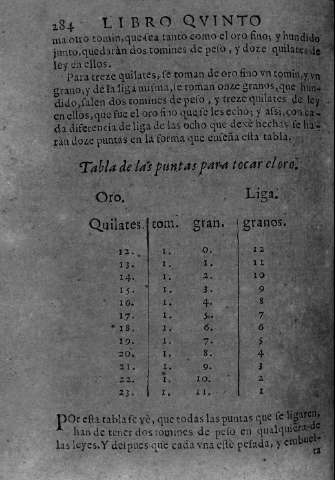 284 LIBRO QVINTO
ma otro tomin, que sea tanto como el oro fino; y hundido
junto, quedarán dos tomines de peso, y doze quilates de
ley en ellos.
Para treze quilates, se toman de oro fino vn tomin, y vn
grano, y de la liga misma, se toman onze granos, que hun-
dido, salen dos tomines de peso, y treze quilates de ley
en ellos, que fue el oro fino que se les echo; y assi, con ca-
da diferencia de liga de las ocho que dexè hechas, se ha-
ran doze puntas en la forma que enseña esta tabla.
Tabla de las puntas para tocar el oro.
Oro. Liga.
Quilates. tom. gran. granos.
12. 1. 0. 12
13. 1. 1. 11
14. 1. 2. 10
15. 1. 3. 9
16. 1. 4. 8
17. 1. 5. 7
18. 1. 6. 6
19. 1. 7. 5
20. 1. 8. 4
21. 1. 9. 3
22. 1. 10. 2
23. 1. 11. 1
POr esta tabla se vè, que todas las puntas que se ligaren,
han de tener dos tomines de peso en qualquiera de
las leyes. Y despues que cada vna estè pesada, y embuel-
ta